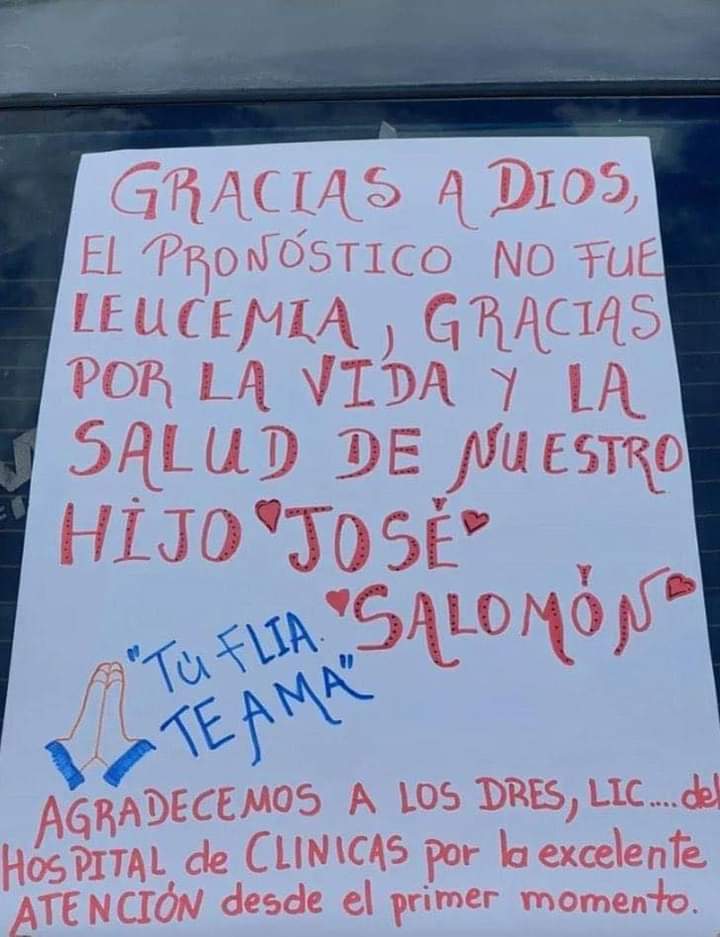 GRACIAS A DIOS,
EL PRONÓSTICO NO FUE
LEUCEMIA, GRACIAS
POR LA VIDA Y LA
SALUD DE NUESTRO
HIJO "JOSÉ"
"SALOMÓN"
"TÚ FLIA.
TE AMA"
AGRADECEMOS A LOS DRES, LIC.... del
HOSPITAL de CLINICAS por la excelente
ATENCIÓN desde el primer momento.